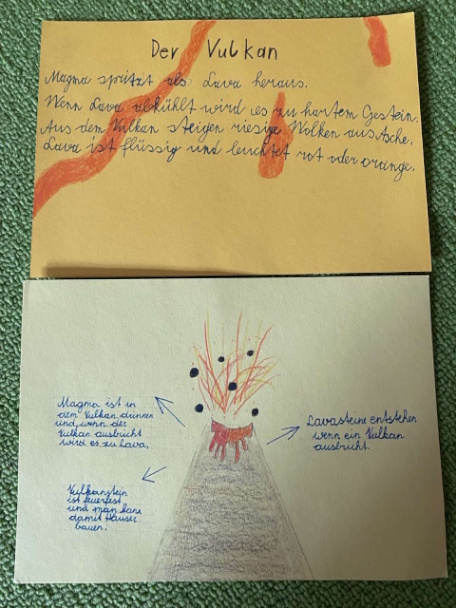 Der Vulkan
Magma spritzt als Lava heraus.
Wenn Lava abkühlt wird es zu hartem Gestein.
Aus dem Vulkan steigen riesige Wolken aus Asche.
Lava ist flüssig und leuchtet rot oder orange.
Magma ist in
dem Vulkan drinnen
und wenn der
Vulkan ausbricht
wird es zu Lava.
Lavasteine entstehen
wenn ein Vulkan
ausbricht.
Vulkanstein
ist feuerfest
und man kann
damit Häuser
bauen.